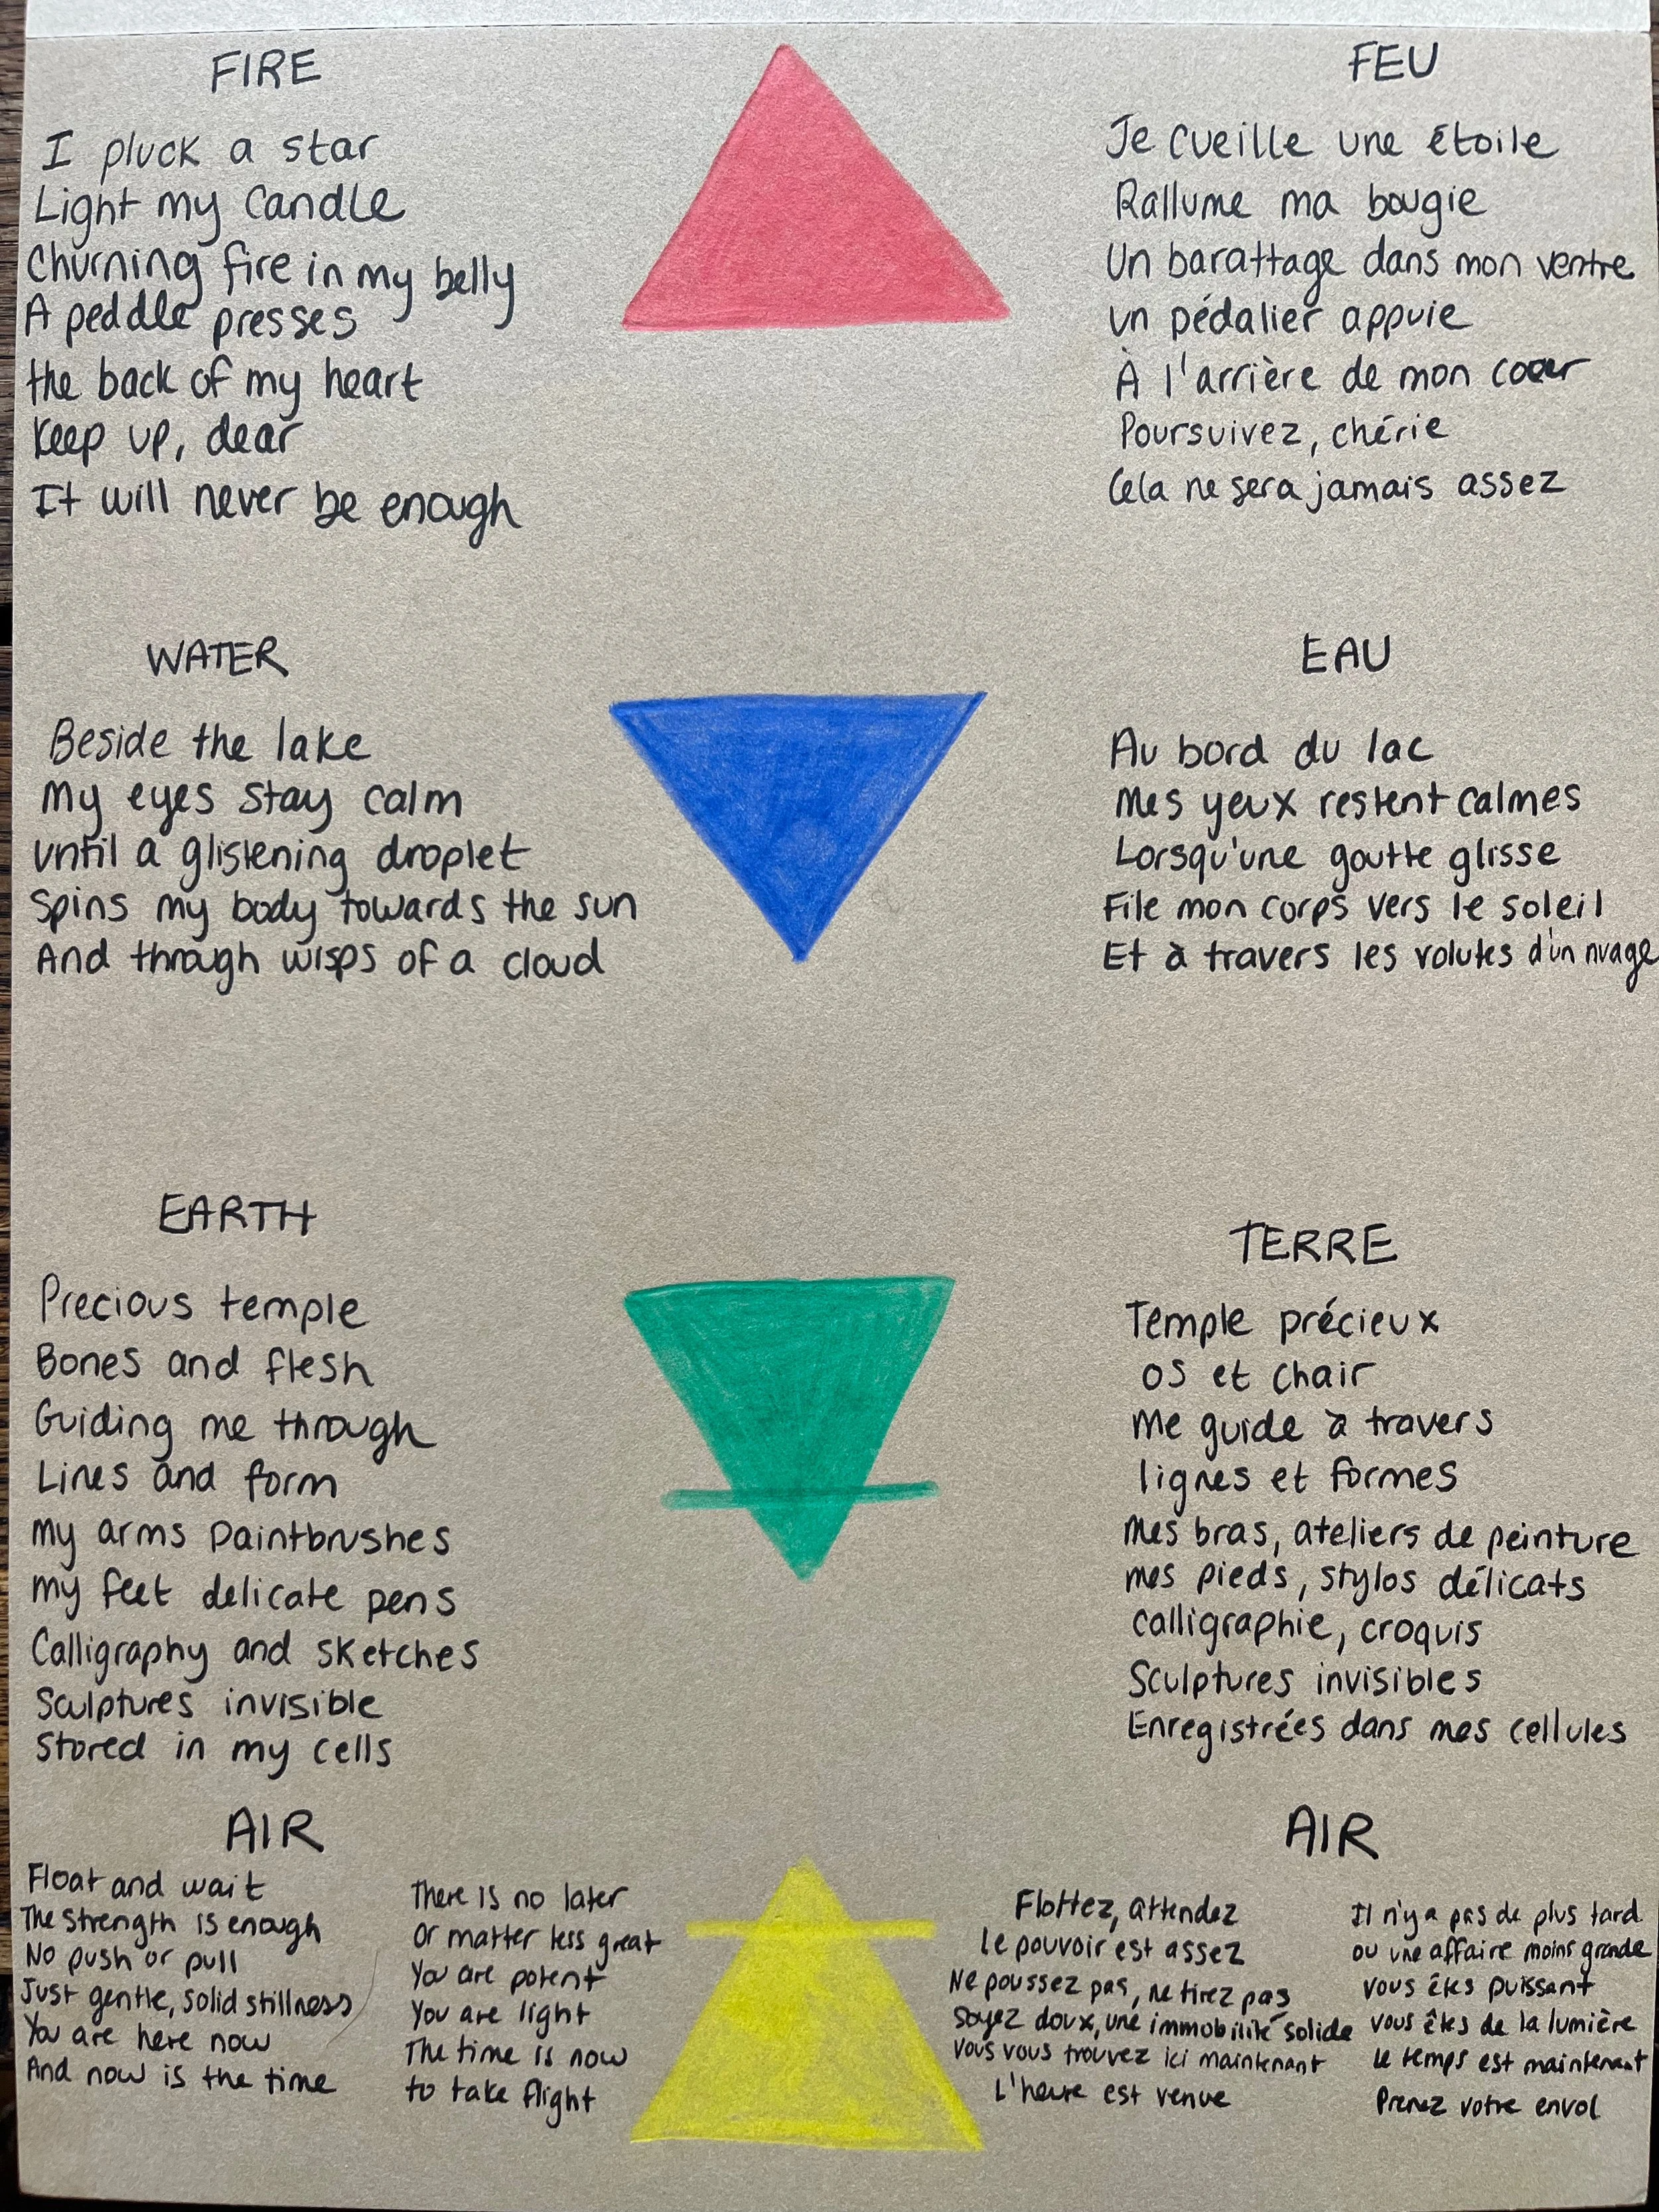 FIRE
I pluck a star
Light my candle
Churning fire in my belly
A peddle presses
the back of my heart
Keep up, dear
It will never be enough
FEU
Je cueille une étoile
Rallume ma bougie
Un barattage dans mon ventre
un pédalier appuie
À l'arrière de mon coeur
Poursuivez, chérie
Cela ne sera jamais assez
WATER
Beside the lake
My eyes stay calm
until a glistening droplet
Spins my body towards the sun
And through wisps of a cloud
EAU
Au bord du lac
Mes yeux restent calmes
Lorsqu'une goutte glisse
File mon corps vers le soleil
Et à travers les volutes d'un nuage
EARTH
Precious temple
Bones and flesh
Guiding me through
Lines and form
my arms paintbrushes
my feet delicate pens
Calligraphy and sketches
Sculptures invisible
Stored in my cells
TERRE
Temple précieux
os et chair
me guide à travers
lignes et formes
Mes bras, ateliers de peinture
mes pieds, stylos délicats
calligraphie, croquis
Sculptures invisibles
Enregistrées dans mes cellules
AIR
Float and wait
The strength is enough
No push or pull
Just gentle, solid stillness
You are here now
And now is the time
There is no later
Or matter less great
You are potent
You are light
The time is now
to take flight
AIR
Flottez, attendez
le pouvoir est assez
Ne poussez pas, ne tirez pas
soyez doux, une immobilité solide
vous vous trouvez ici maintenant
L'heure est venue
Il n'y a pas de plus tard
ou une affaire moins grande
vous êtes puissant
vous êtes de la lumière
le temps est maintenant
Prenez votre envol